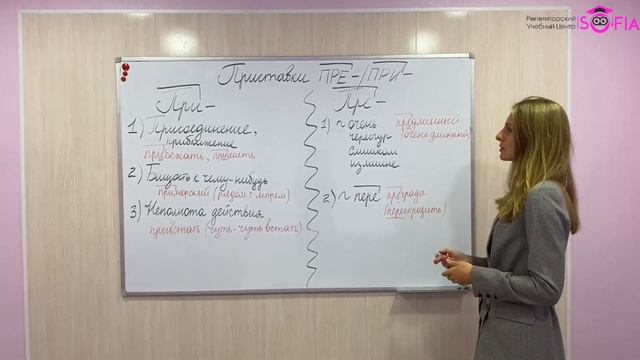 Репетиторский
Учебный Центр
SOFIA
Приставки ПРЕ-/ПРИ-
При-
1) Присоединение,
приближение
прибежать, пришить
2) Близость к чему-нибудь
приморский (рядом с морем)
3) Неполнота действия
привстать (чуть-чуть встать)
Пре-
1) ~ очень
чересчур
слишком
излишне
предлинный
(очень длинный)
2) ~ пере
преграда
(перегородить)